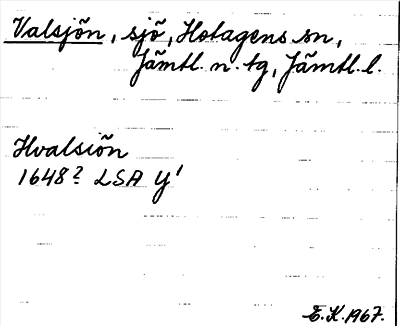 Valsjön, sjö, Hotagens sn,
Jämtl. n. tg, Jämtl. l.
Hvalsiön
1648? LSA Y¹
E.K. 1967.